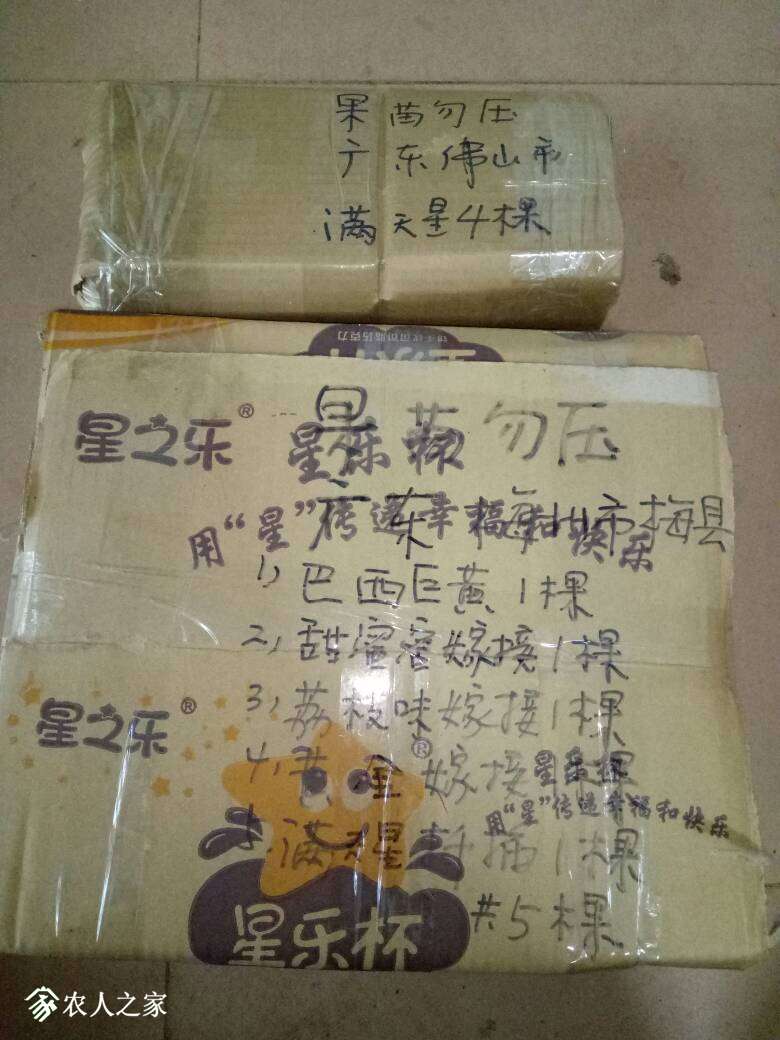 果苗勿压
广东佛山市
满天星4棵
星之乐®
果苗勿压
星乐杯
广东梅州市梅县
用“星”传递幸福和快乐
1,巴西巨黄1棵
2,甜蜜蜜嫁接1棵
3,荔枝味嫁接1棵
星之乐®
4,黄金嫁接1棵
星乐杯
用“星”传递幸福和快乐
5,满天星扦插1棵
共5棵
星乐杯
农人之家